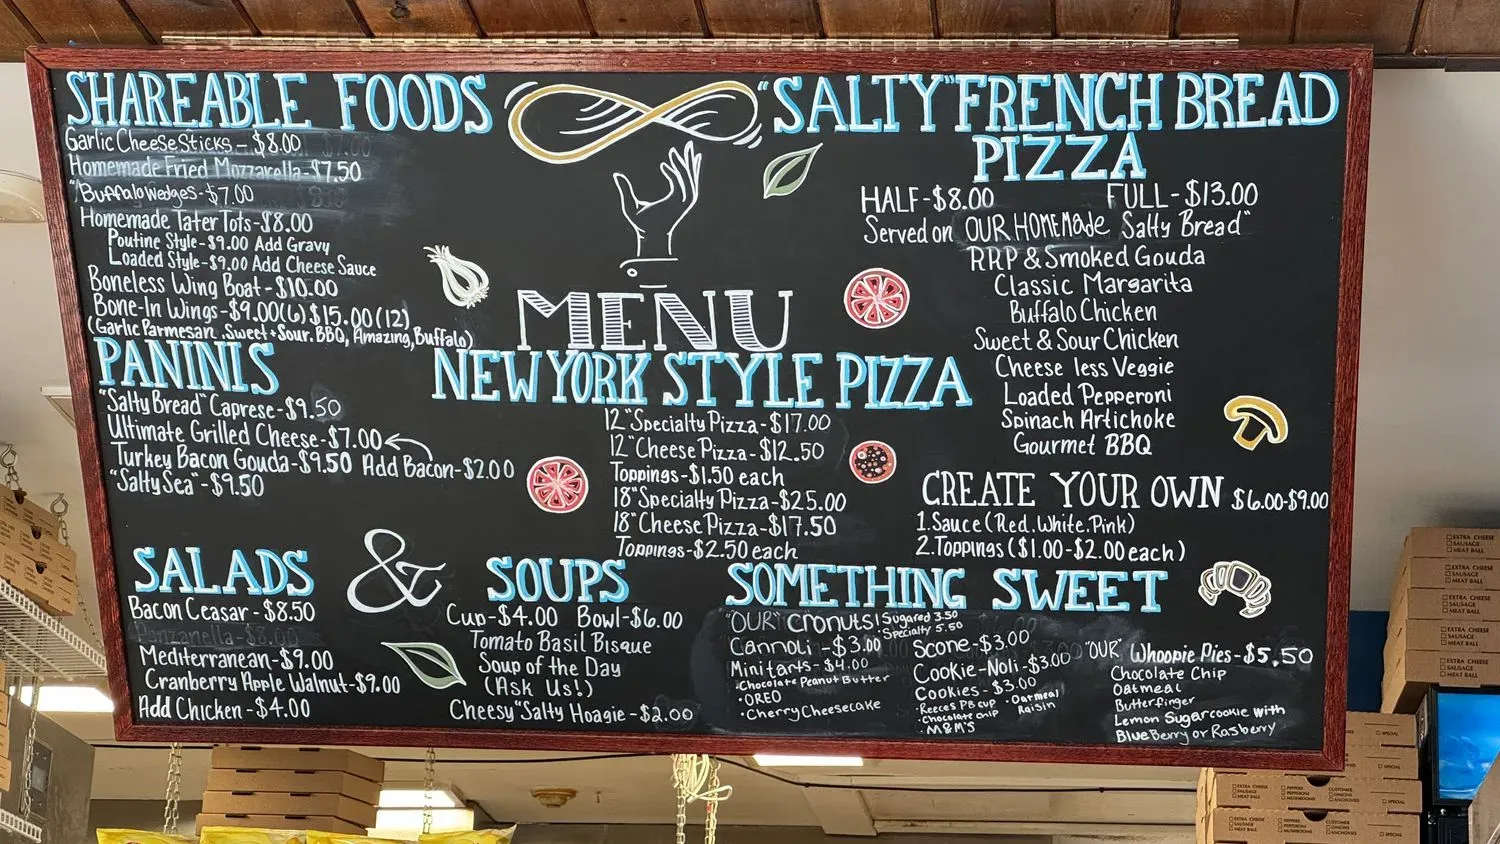 SHAREABLE FOODS
Garlic Cheese Sticks - $8.00
Homemade Fried Mozzarella - $7.50
"Buffalo Wedges - $7.00
Homemade Tater Tots - $8.00
Poutine Style - $9.00 Add Gravy
Loaded Style - $9.00 Add Cheese Sauce
Boneless Wing Boat - $10.00
Bone-In Wings - $9.00 (6) $15.00 (12)
(Garlic Parmesan, Sweet + Sour, BBQ, Amazing, Buffalo)
PANINIS
"Salty Bread" Caprese - $9.50
Ultimate Grilled Cheese - $7.00
Turkey Bacon Gouda - $9.50 Add Bacon - $2.00
"Salty Sea" - $9.50
SALADS
Bacon Ceasar - $8.50
Panzanella - $8.00
Mediterranean - $9.00
Cranberry Apple Walnut - $9.00
Add Chicken - $4.00
&
SOUPS
Cup - $4.00 Bowl - $6.00
Tomato Basil Bisque
Soup of the Day
(Ask Us!)
Cheesy "Salty Hoagie - $2.00
MENU
NEW YORK STYLE PIZZA
12" Specialty Pizza - $17.00
12" Cheese Pizza - $12.50
Toppings - $1.50 each
18" Specialty Pizza - $25.00
18" Cheese Pizza - $17.50
Toppings - $2.50 each
"SALTY" FRENCH BREAD
PIZZA
HALF - $8.00 FULL - $13.00
Served on OUR HOMEMade Salty Bread"
RRP & Smoked Gouda
Classic Margarita
Buffalo Chicken
Sweet & Sour Chicken
Cheese less Veggie
Loaded Pepperoni
Spinach Artichoke
Gourmet BBQ
CREATE YOUR OWN $6.00-$9.00
1. Sauce (Red, White, Pink)
2. Toppings ($1.00-$2.00 each)
SOMETHING SWEET
"OUR" Cronuts | Sugared 3.50
Specialty 5.50
Cannoli - $3.00
Mini tarts - $4.00
• Chocolate Peanut Butter
• OREO
• Cherry Cheesecake
Scone - $3.00
Cookie-Noli - $3.00
Cookies - $3.00
• Reeces PB cup • Oatmeal
• Chocolate chip Raisin
• M&M'S
"OUR" Whoopie Pies - $5.50
Chocolate Chip
Oatmeal
Butterfinger
Lemon Sugar cookie with
Blue Berry or Rasberry
EXTRA CHEESE
SAUSAGE
MEAT BALL
EXTRA CHEESE
SAUSAGE
MEAT BALL
EXTRA CHEESE
SAUSAGE
MEAT BALL
EXTRA CHEESE
SAUSAGE
MEAT BALL
SPECIAL
SPECIAL
SPECIAL